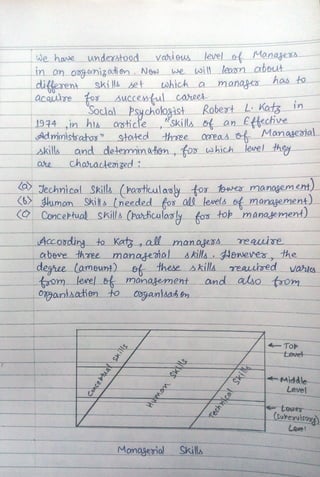 We have understood various level of Managers
in an organization. Now we will learn about
different skills set which a manager has to
acquire for successful career.
Social Psychologist Robert L. Katz in
1974, in his article, "Skills of an Effective
Administrator" stated three areas of Managerial
skills and determination, for which level they
are characterized :
(a) Technical Skills (Particularly for lower management)
(b) Human Skills (needed for all levels of management)
(c) Conceptual Skills (Particularly for top management)
According to Katz, all managers require
above three managerial skills. However, the
degree (amount) of these skills required varies
from level of management and also from
organisation to organisation
Conceptual Skills
Human Skills
Technical Skills
Top
Level
Middle
Level
Lower
(Supervisory)
Level
Managerial Skills